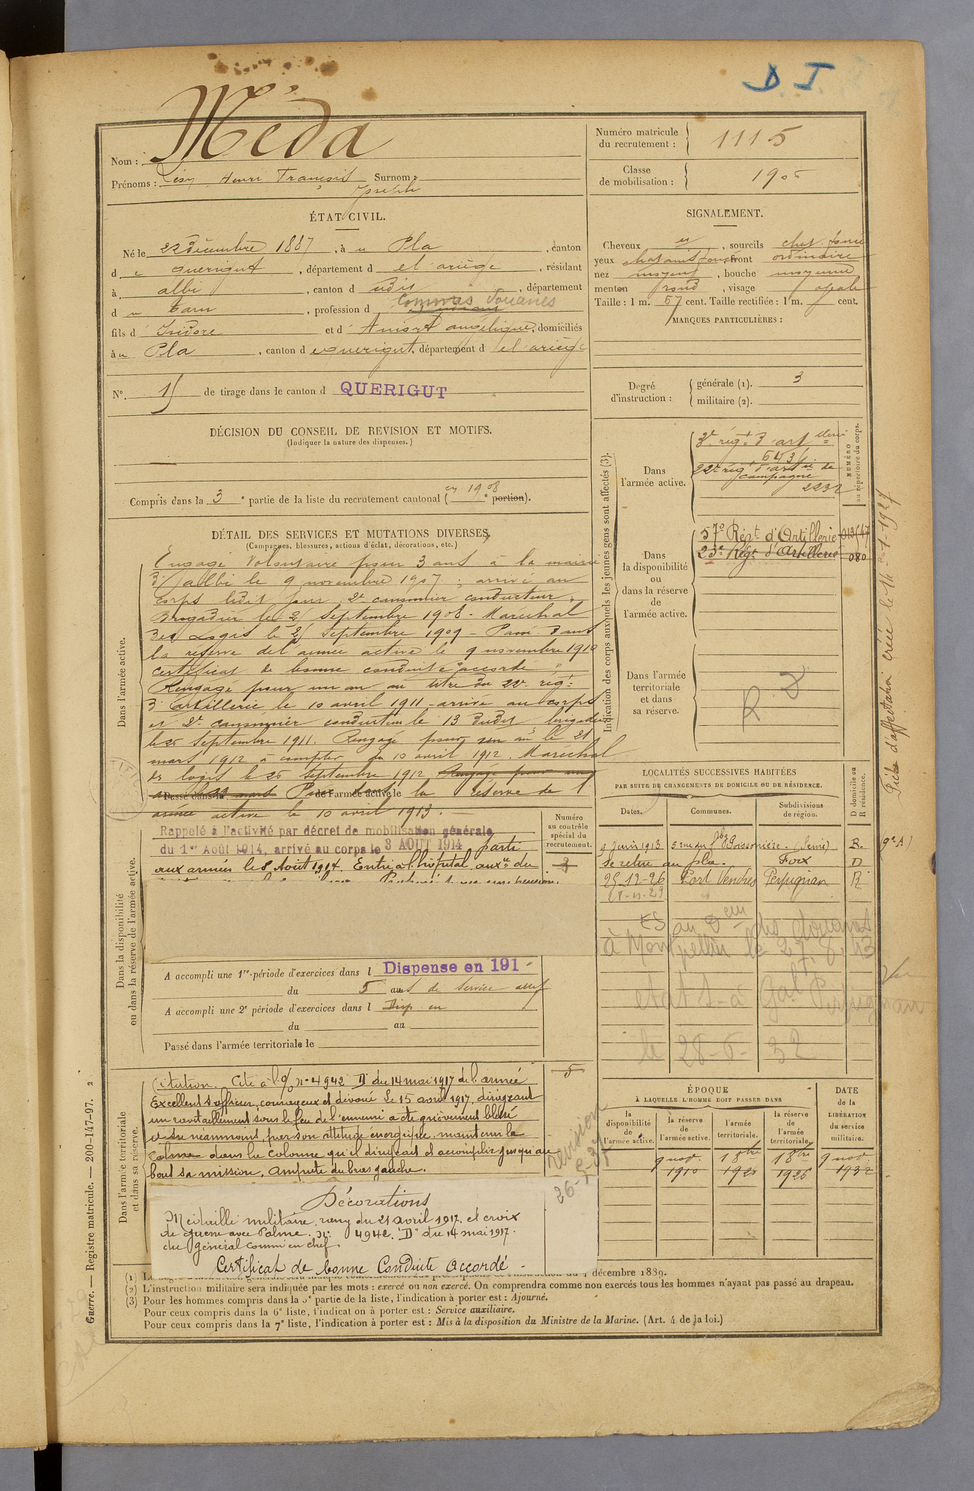 D. I.
Méda
Nom :
Prénoms : Henri François Surnom :
Joseph
ÉTAT CIVIL.
Né le 22 Décembre 1887, à Pla, canton
de querigut, département de l'ariège, résidant
à albi, canton d udit, département
d u tarn, profession d Commis Douanes
fils d' Isidore et d' Amiort angélique, domiciliés
à u Pla, canton d querigut, département d el ariège
N°. 15 de tirage dans le canton d QUERIGUT
DÉCISION DU CONSEIL DE REVISION ET MOTIFS.
(Indiquer la nature des dispenses.)
Compris dans la 3e partie de la liste du recrutement cantonal (en 1908 e portion).
DÉTAIL DES SERVICES ET MUTATIONS DIVERSES,
(Campagnes, blessures, actions d'éclat, décorations, etc.)
Dans l'armée active.
Engagé Volontaire pour 3 ans à la mairie
d'albi le 9 novembre 1907 ; arrivé au
corps ledit jour, 2e canonnier conducteur,
Brigadier le 25 Septembre 1908 - Maréchal
des Logis le 25 Septembre 1909 - Passé dans
la réserve de l'armée active le 9 novembre 1910
certificat de bonne conduite "accordé"
Rengagé pour un an au titre du 22e régt
d'Artillerie le 10 avril 1911 - arrivé au corps
et 2e canonnier conducteur le 13 dudit brigadier
le 25 Septembre 1911. Rengagé pour un an le 21
mars 1912 à compter du 10 avril 1912. Maréchal
des logis le 25 Septembre 1912
Passé dans la réserve de l'
armée active le 10 avril 1913.
Dans la disponibilité
ou dans la réserve de l'armée active.
Rappelé à l'activité par décret de mobilisation générale
du 1er Août 1914, arrivé au corps le 3 AOUT 1914 parti
aux armées le 8 Août 1914. Entré à l'hôpital auxre du
Numéro
au contrôle
spécial du
recrutement.
3
A accompli une 1re période d'exercices dans l Dispense en 191-
du 5 ans de service actif
A accompli une 2e période d'exercices dans l Disp en
du au
Passé dans l'armée territoriale le
Dans l'armée territoriale
et dans sa réserve.
Citation. Cité à l'o/ n° 4942 "D" du 14 mai 1917 de l'armée
Excellent s/officier, courageux et dévoué. Le 15 avril 1917, dirigeant
un ravitaillement sous le feu de l'ennemi a été grièvement blessé
et a su néanmoins, par son attitude énergique, maintenir le
calme dans la colonne qu'il dirigeait et accomplir jusqu'au
bout sa mission. Amputé du bras gauche.
5
Révision
Décorations
Médaille militaire, rang du 21 avril 1917, et croix
de guerre avec Palme. N° 4942 "D" du 14 mai 1917.
du Général Commt en chef.
Certificat de bonne Conduite accordé -
Numéro matricule
du recrutement : 1115
Classe
de mobilisation :
SIGNALEMENT.
Cheveux, sourcils chat. foncé
yeux chatains foncé front ordinaire
nez moyen, bouche moyenne
menton rond, visage ovale
Taille : 1 m. 67 cent. Taille rectifiée : 1 m. cent.
MARQUES PARTICULIÈRES :
Degré
d'instruction :
générale (1). 3
militaire (2).
Indication des corps auxquels les jeunes gens sont affectés (3).
NUMÉRO
au répertoire du corps.
Dans
l'armée active.
3e régt d'artillerie
22e régt d'artie de
campagne
2232
Dans
la disponibilité
ou
dans la réserve
de
l'armée active.
57e Régt d'Artillerie
23e Régt d'Artillerie 080
Dans l'armée
territoriale
et dans
sa réserve.
Fiche d'affectation créée le 14-1-1927
LOCALITÉS SUCCESSIVES HABITÉES
PAR SUITE DE CHANGEMENTS DE DOMICILE OU DE RÉSIDENCE.
Dates.
Communes.
Subdivisions
de région.
D domicile ou
R résidence.
Juin 1913 (Seine) R.
Se retire au pla. Foix D
25-12-26 Port Vendres Perpignan R
ES au des douanes
à Montpellier le
état à Gal Perpignan
le 28-6-32
ÉPOQUE
À LAQUELLE L'HOMME DOIT PASSER DANS
la
disponibilité
de
l'armée active.
la réserve
de
l'armée active.
l'armée
territoriale.
la réserve
de
l'armée
territoriale.
DATE
de la
LIBÉRATION
du service
militaire.
9 nov. 1910
1920
1926
9 nov 1932
décembre 1889.
(2) L'instruction militaire sera indiquée par les mots : exercé ou non exercé. On comprendra comme non exercés tous les hommes n'ayant pas passé au drapeau.
(3) Pour les hommes compris dans la 5e partie de la liste, l'indication à porter est : Ajourné.
Pour ceux compris dans la 6e liste, l'indication à porter est : Service auxiliaire.
Pour ceux compris dans la 7e liste, l'indication à porter est : Mis à la disposition du Ministre de la Marine. (Art. 4 de la loi.)
Guerre. — Registre matricule. — 200-147-97.